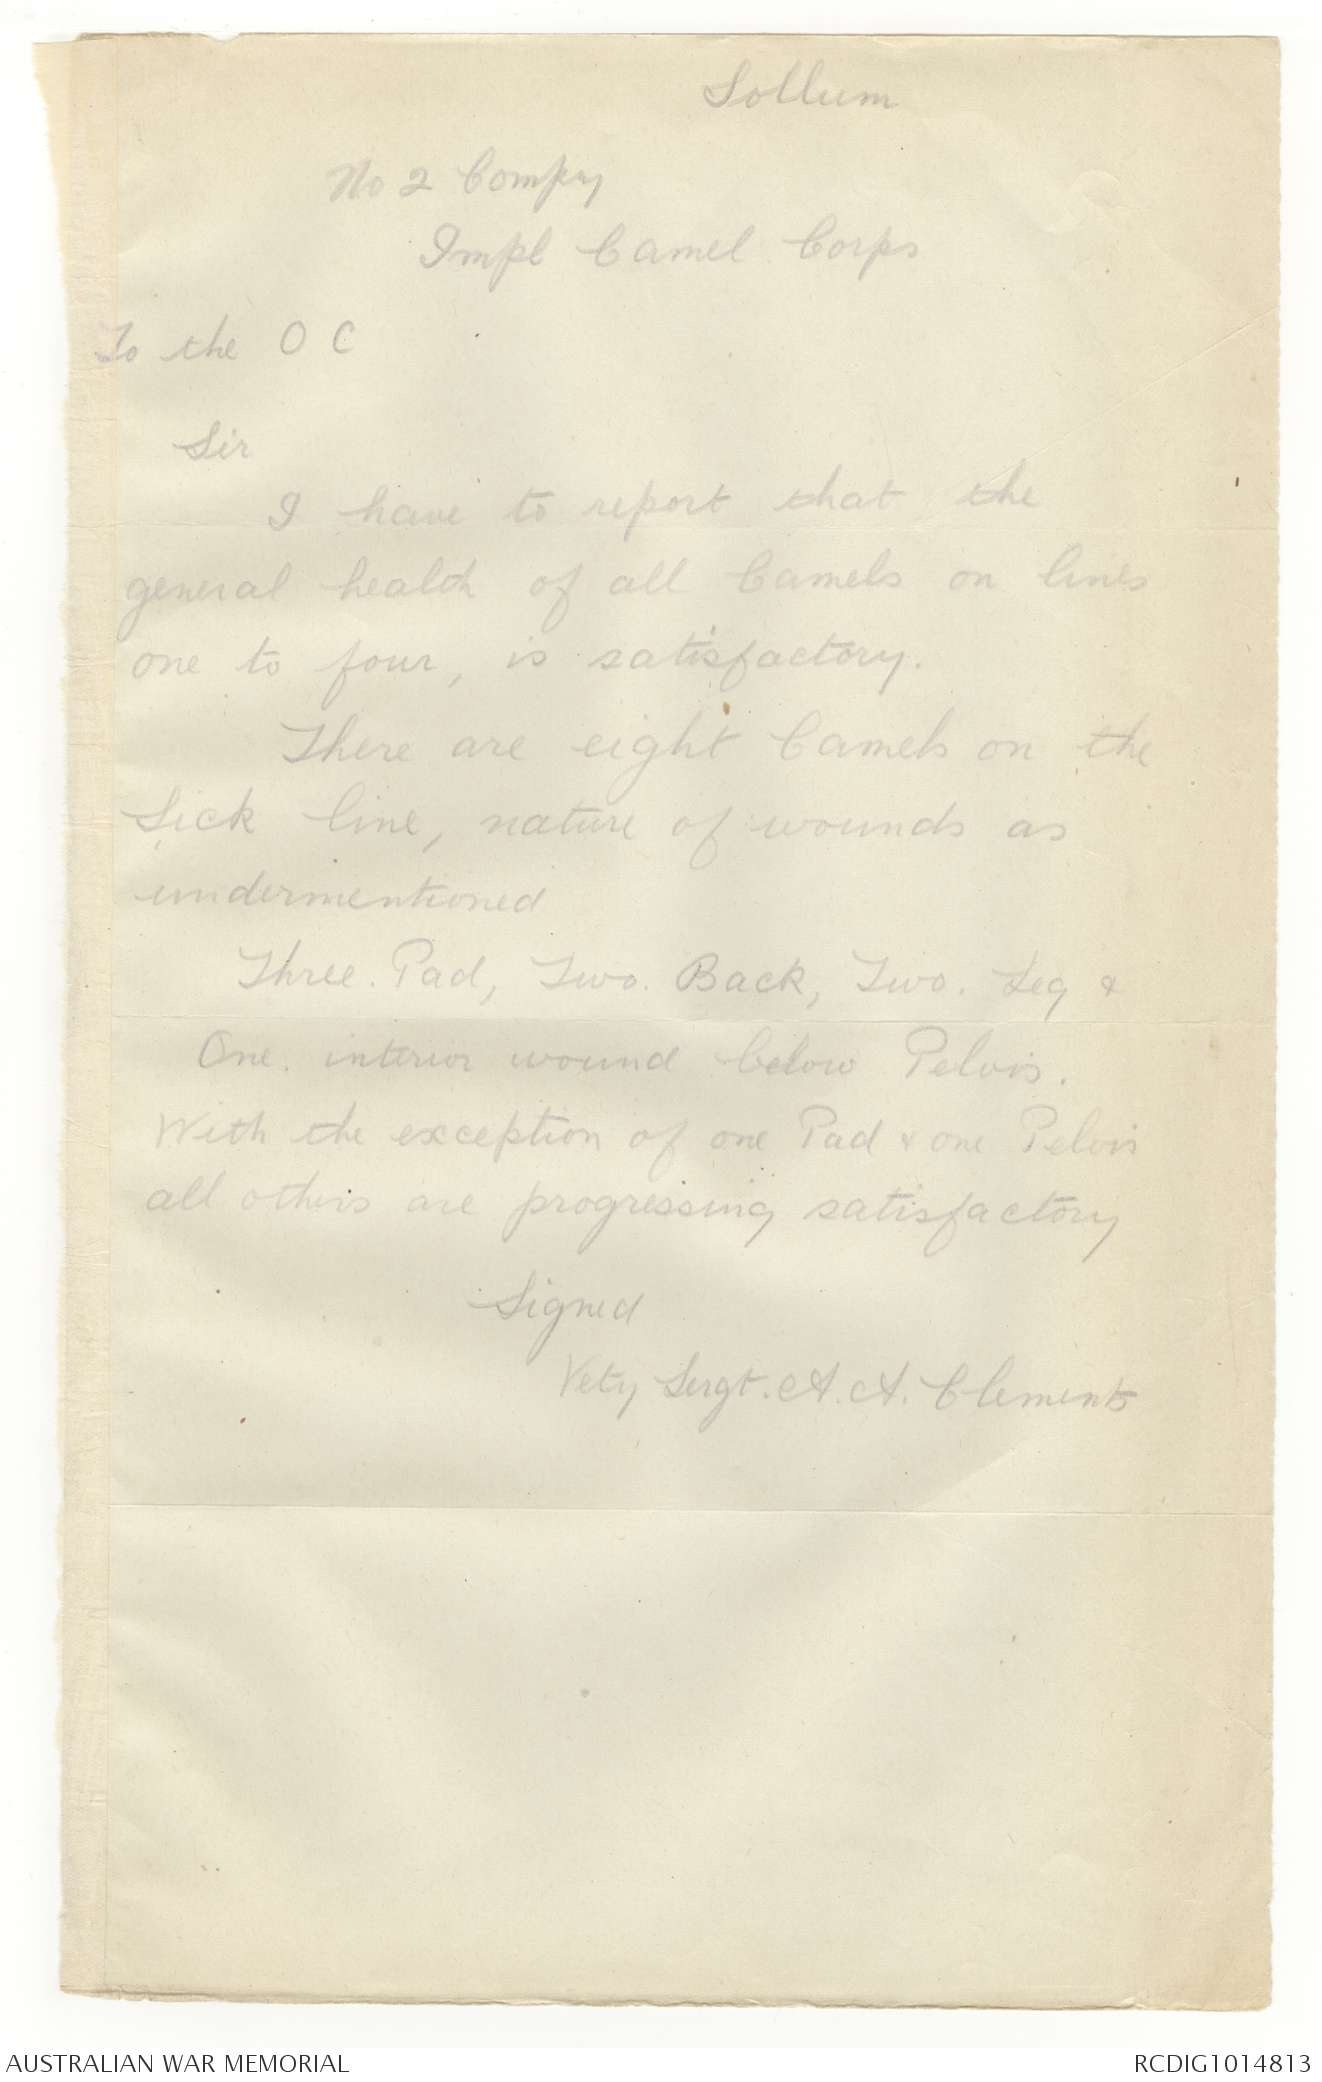 Sollum
No 2 Compy
Impl Camel Corps
To the O C
Sir
I have to report that the
general health of all Camels on lines
one to four, is satisfactory.
There are eight Camels on the
Sick line, nature of wounds as
undermentioned
Three. Pad, Two. Back, Two. Leg &
One. interior wound below Pelvis.
With the exception of one Pad & one Pelvis
all others are progressing satisfactory
Signed
Vety Sergt. A. A. Clements
AUSTRALIAN WAR MEMORIAL
RCDIG1014813